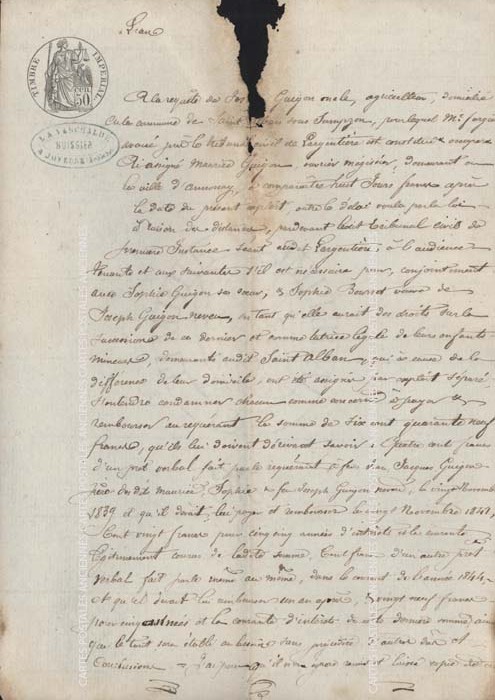 TIMBRE IMPERIAL
50
LAVASCHALDE
HUISSIER
A JOYEUSE
A la requête de Guigon oncle, agriculteur, domicilié
en la commune de Saint sous Sampzon, pour lequel Me
avoué près le tribunal civil de Largentière est constitué
ai assigné Maurice Guigon, ouvrier demeurant en
la ville d'Annonay, à comparaître huit jours francs après
la date du présent exploit, outre le délai voulu par la loi
à raison des distances, pardevant le tribunal civil de
première Instance séant audit Largentière, à l'audience
tenante et aux suivantes s'il est nécessaire pour, conjointement
avec Sophie Guigon sa sœur, & Sophie veuve de
Joseph Guigon neveu, en tant qu'elle aurait des droits sur la
succession de ce dernier et comme tutrice légale de leurs enfants
mineurs, demeurants audit Saint Alban, qui à cause de la
différence de leur domicile, ont été assignés par exploit séparé
condamner chacun comme concerne à payer &
rembourser au requérant la somme de six cent quarante neuf
francs, qu'ils lui doivent savoir : Quatre cent francs
d'un prêt verbal fait par le requérant à feu Jacques Guigon
père desdits Maurice, Sophie & feu Joseph Guigon neveu, le vingt Novembre
1839 et qu'il devait lui payer et rembourser le vingt Novembre 1841,
Cent vingt francs pour cinq années d'intérêts et la courante
légitimement courus de ladite somme, Cent francs d'un autre prêt
verbal fait par le même au même, dans le courant de l'année 1844
et qu'il devait lui rembourser un an après, & vingt neuf francs
pour cinq années et la courante d'intérêts de cette dernière somme, ainsi
que le tout sera établi au besoin sans préjudice d'autres dûs
Conclusions